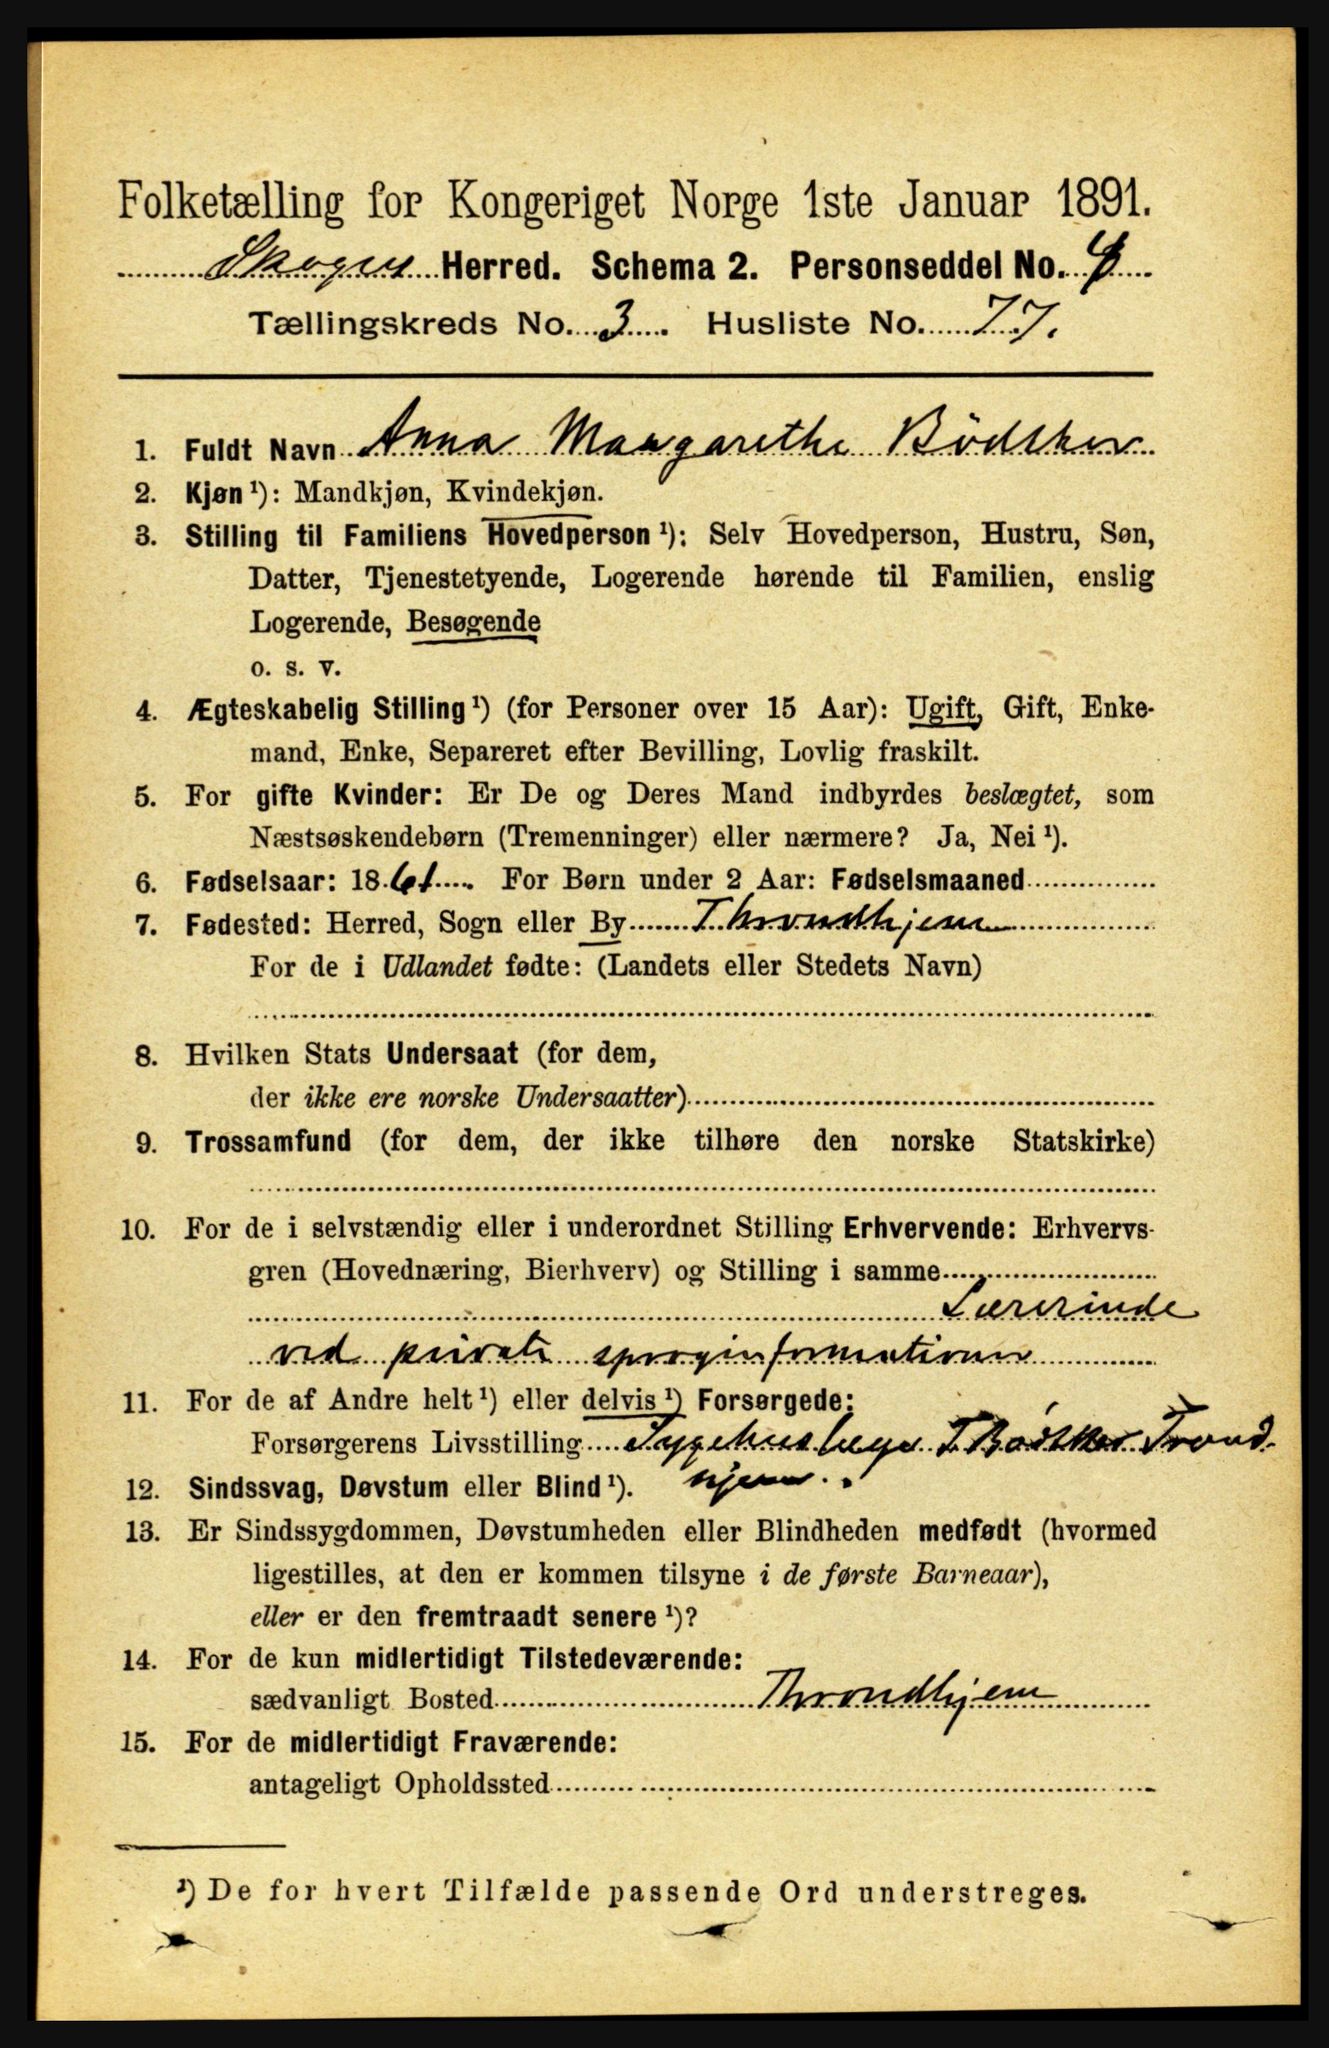 Folketælling for Kongeriget Norge 1ste Januar 1891.
Skogns Herred. Schema 2. Personseddel No.
Tællingskreds No. 3. Husliste No. 77.
1. Fuldt Navn Anna Margarethe Bödtker
2. Kjøn ¹): Mandkjøn, Kvindekjøn.
3. Stilling til Familiens Hovedperson ¹): Selv Hovedperson, Hustru, Søn,
Datter, Tjenestetyende, Logerende hørende til Familien, enslig
Logerende, Besøgende
o. s. v.
4. Ægteskabelig Stilling ¹) (for Personer over 15 Aar): Ugift, Gift, Enke-
mand, Enke, Separeret efter Bevilling, Lovlig fraskilt.
5. For gifte Kvinder: Er De og Deres Mand indbyrdes beslægtet, som
Næstsøskendebørn (Tremenninger) eller nærmere? Ja, Nei ¹).
6. Fødselsaar: 1861. For Børn under 2 Aar: Fødselsmaaned
7. Fødested: Herred, Sogn eller By Throndhjem
For de i Udlandet fødte: (Landets eller Stedets Navn)
8. Hvilken Stats Undersaat (for dem,
der ikke ere norske Undersaatter)
9. Trossamfund (for dem, der ikke tilhøre den norske Statskirke)
10. For de i selvstændig eller i underordnet Stilling Erhvervende: Erhvervs-
gren (Hovednæring, Bierhverv) og Stilling i samme
Lærerinde
ved private sproginformationer
11. For de af Andre helt ¹) eller delvis ¹) Forsørgede:
Forsørgerens Livsstilling Sygehuslæge T. Bödtker Trond-
hjem.
12. Sindssvag, Døvstum eller Blind ¹).
13. Er Sindssygdommen, Døvstumheden eller Blindheden medfødt (hvormed
ligestilles, at den er kommen tilsyne i de første Barneaar),
eller er den fremtraadt senere ¹)?
14. For de kun midlertidigt Tilstedeværende:
sædvanligt Bosted Throndhjem
15. For de midlertidigt Fraværende:
antageligt Opholdssted
¹) De for hvert Tilfælde passende Ord understreges.